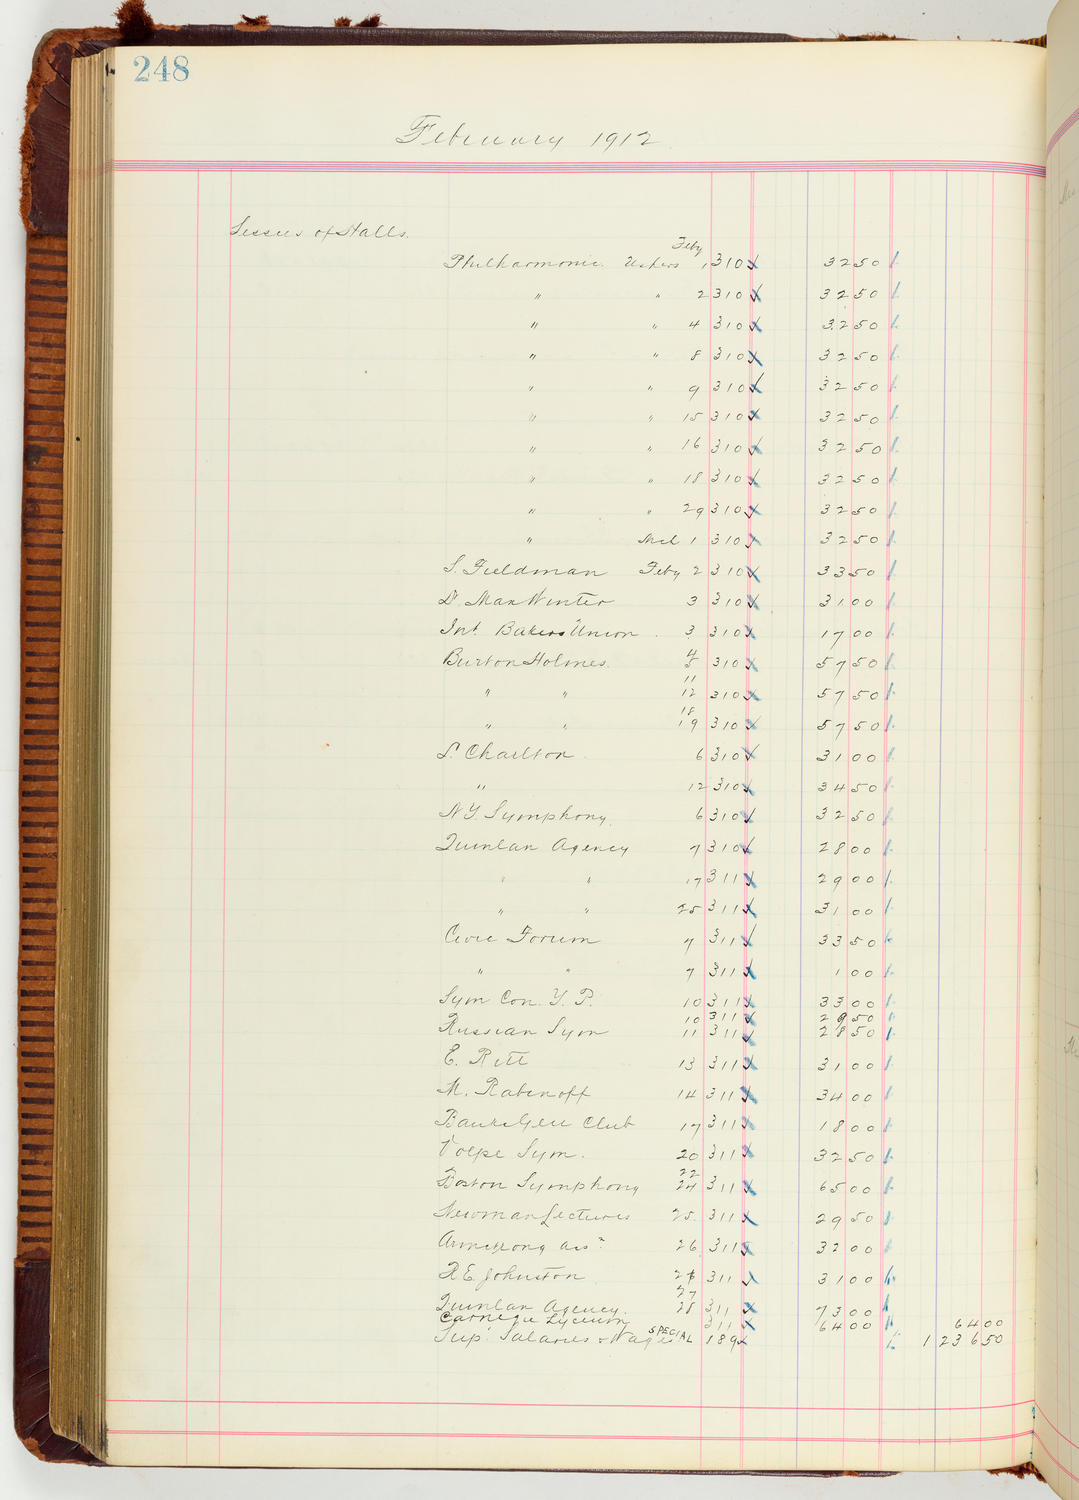 248
February 1912
Lessees of Halls.
Philharmonic Ushers Feby 1 310 32 50
" " 2 310 32 50
" " 4 310 32 50
" " 8 310 32 50
" " 9 310 32 50
" " 15 310 32 50
" " 16 310 32 50
" " 18 310 32 50
" " 29 310 32 50
" Mch 1 310 32 50
S. Fieldman Feby 2 310 33 50
D. Max Winter 3 310 31 00
Int. Bakers Union 3 310 17 00
Burton Holmes. 4 5 310 57 50
" " 11 12 310 57 50
" " 18 19 310 57 50
L. Charlton 6 310 31 00
" 12 310 34 50
N.Y. Symphony. 6 310 32 50
Quinlan Agency 7 310 28 00
" " 17 311 29 00
" " 25 311 31 00
Civic Forum 7 311 33 50
" " 7 311 1 00
Sym Con. Y. P. 10 311 33 00
10 311 29 50
Russian Sym 11 311 28 50
E. 13 311 31 00
M. Rabinoff 14 311 34 00
Club 17 311 18 00
Volpe Sym. 20 311 32 50
Boston Symphony 22 24 311 65 00
Newman Lectures 25. 311 29 50
Armstrong assn 26 311 32 00
R.E. Johnston 311 31 00
Quinlan Agency. 27 28 311 73 00
Carnegie Lyceum 311 64 00 64 00
Sup. Salaries & Wages SPECIAL 189 1 236 50